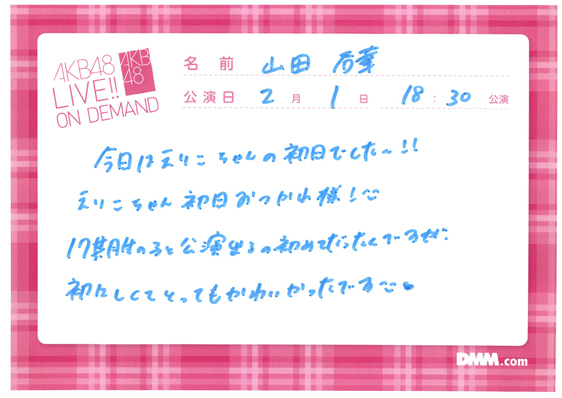 AKB48
LIVE!!
ON DEMAND
AKB
48
名前 山田 杏華
公演日 2月1日 18:30公演
今日はえりこちゃんの初日でした〜!!
えりこちゃん初日おつかれ様!
17期生の子と公演出るの初めてだったんですが、
初々しくてとってもかわいかったです♥
DMM.com